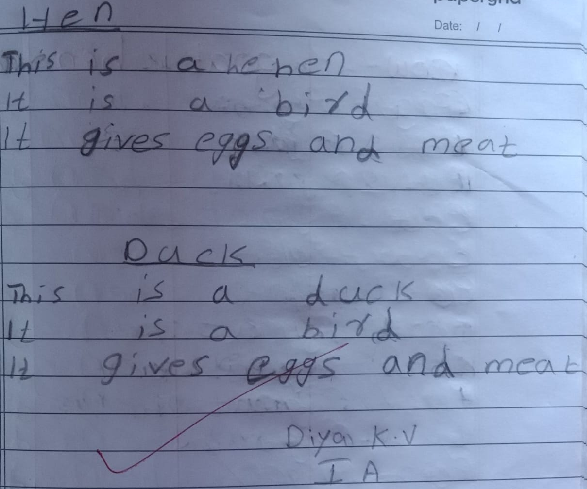 Hen
Date: / /
This is a he hen
It is a bird
It gives eggs and meat
Duck
This is a duck
It is a bird
It gives eggs and meat
Diya K.V
I A